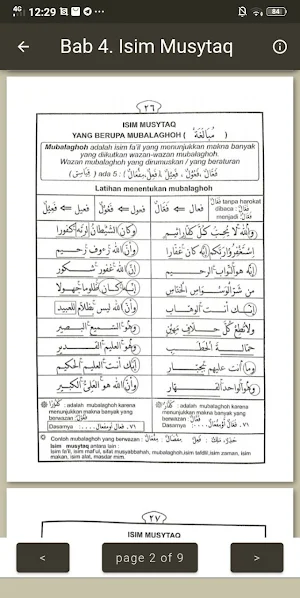 4G 12:29 84
Bab 4. Isim Musytaq
٢٦
ISIM MUSYTAQ
YANG BERUPA MUBALAGHOH ( مُبَالَغَةْ )
Mubalaghoh adalah isim fa'il yang menunjukkan makna banyak
yang diikutkan wazan-wazan mubalaghoh.
Wazan mubalaghoh yang dirumuskan / yang beraturan
( قِيَاسِيْ ) ada 5 : ( فَعَّالٌ، فَعُوْلٌ، فَعِيْلٌ، فَعِلٌ، مِفْعَالٌ )
Latihan menentukan mubalaghoh
فعال ⇐ فَعَّالٌ فعول ⇐ فَعُوْلٌ فعيل ⇐ فَعِيْلٌ
فعال tanpa harokat
dibaca : فَعَّالٌ
menjadi فَعَّالٌ
وَاللّٰهُ لَا يُحِبُّ كُلَّ كَفَّارٍ أَثِيْمٍ وَكَانَ الشَّيْطَانُ لِرَبِّهِ كَفُوْرًا
اِسْتَغْفِرُوْا رَبَّكُمْ إِنَّهُ كَانَ غَفَّارًا وَأَنَّ اللّٰهَ رَءُوْفٌ رَحِيْمٌ
إِنَّهُ هُوَ التَّوَّابُ الرَّحِيْمُ إِنَّ اللّٰهَ غَفُوْرٌ شَكُوْرٌ
مِنْ شَرِّ الْوَسْوَاسِ الْخَنَّاسِ إِنَّهُ كَانَ ظَلُوْمًا جَهُوْلًا
إِنَّكَ أَنْتَ الْوَهَّابُ وَأَنَّ اللّٰهَ لَيْسَ بِظَلَّامٍ لِلْعَبِيْدِ
وَلَا تُطِعْ كُلَّ حَلَّافٍ مَهِيْنٍ وَهُوَ السَّمِيْعُ الْبَصِيْرُ
حَمَّالَةَ الْحَطَبِ وَهُوَ الْعَلِيْمُ الْقَدِيْرُ
وَمَا أَنْتَ عَلَيْهِمْ بِجَبَّارٍ إِنَّكَ أَنْتَ الْعَلِيْمُ الْحَكِيْمُ
وَهُوَ الْوَاحِدُ الْقَهَّارُ وَأَنَّ اللّٰهَ هُوَ الْعَلِيُّ الْكَبِيْرُ
adalah mubalaghoh karena
menunjukkan makna banyak yang
berwazan
Dasarnya
adalah mubalaghoh karena
menunjukkan makna banyak yang
berwazan
Dasarnya
Contoh mubalaghoh yang berwazan : مِفْعَالٌ : مِفْضَالٌ فَعِلٌ : حَذِرٌ، مَلِكٌ
Isim musytaq antara lain :
isim fa'il, isim maf'ul, sifat musyabbahah, mubalaghoh, isim tafdlil, isim zaman, isim
makan, isim alat, masdar mim.
٢٧
ISIM MUSYTAQ
<
page 2 of 9
>